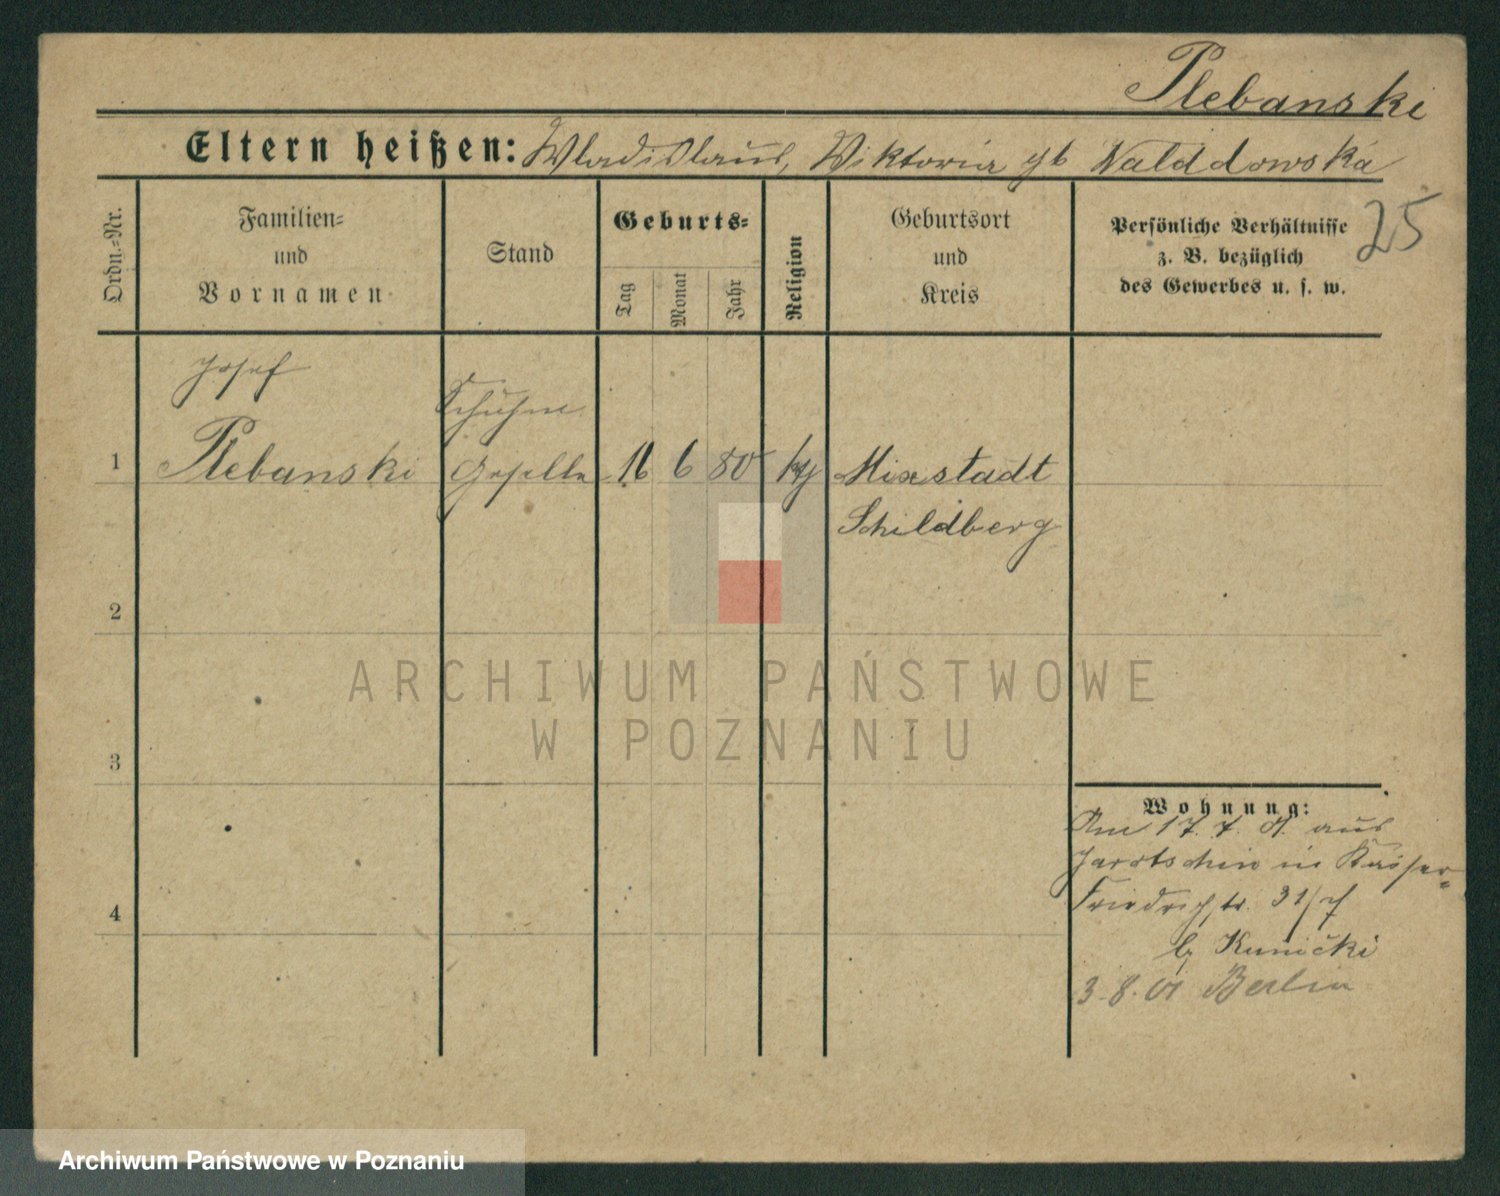 Plebanski
Eltern heißen: Wladislaus, Wiktoria gb Nalddowska
25
Ordn.-Nr.
Familien-
und
Vornamen
Stand
Geburts-
Tag
Monat
Jahr
Religion
Geburtsort
und
Kreis
Persönliche Verhältnisse
z. B. bezüglich
des Gewerbes u. s. w.
Josef
Schuhm
1 Plebanski Geselle 16 6 80 ktf Mixstadt
Schildberg
2
3
4
Wohnung:
Am 17. 7. 01. aus
Jarotschin in Kaiser-
Friedrichstr. 31/
b Kunicki
3.8.01 Berlin
ARCHIWUM PAŃSTWOWE
W POZNANIU
Archiwum Państwowe w Poznaniu